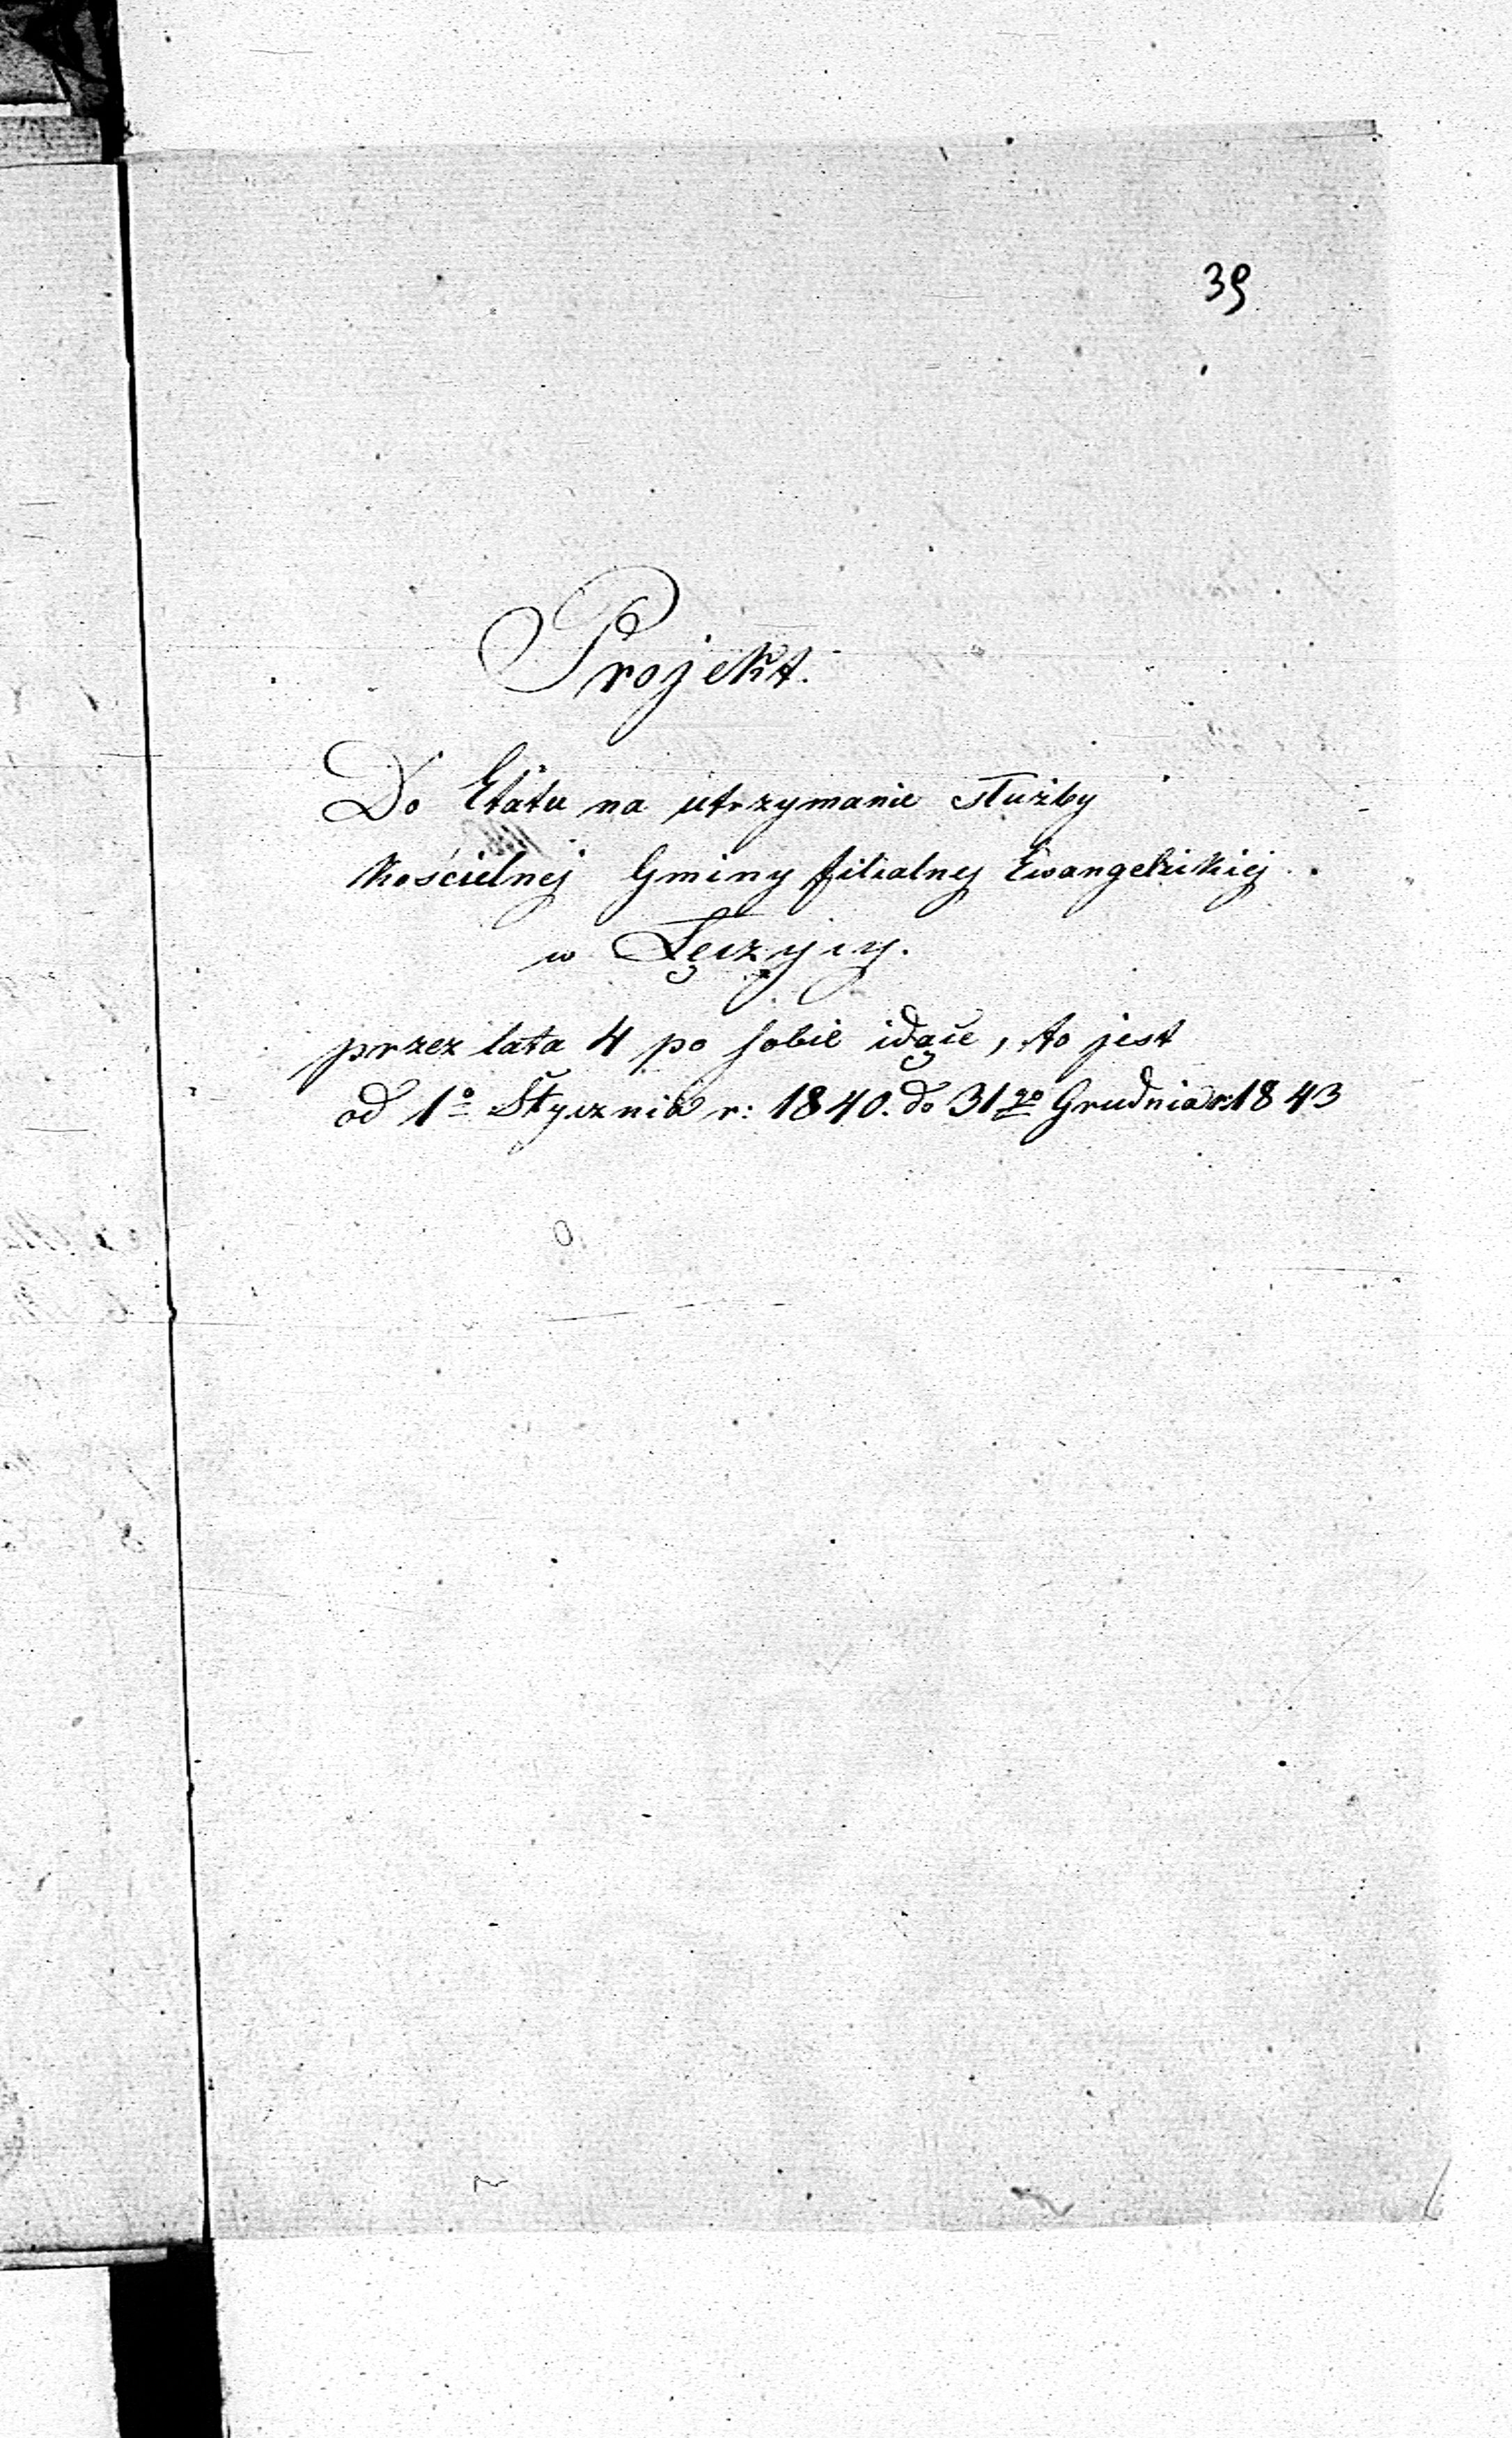 39
Projekt.
Do Etatu na utrzymanie służby
Kościelnej Gminy filialney Ewangelickiej
w Łęczycy.
przez lata 4 po sobie idące, to jest
od 1º Stycznia r: 1840. do 31go Grudnia r: 1843